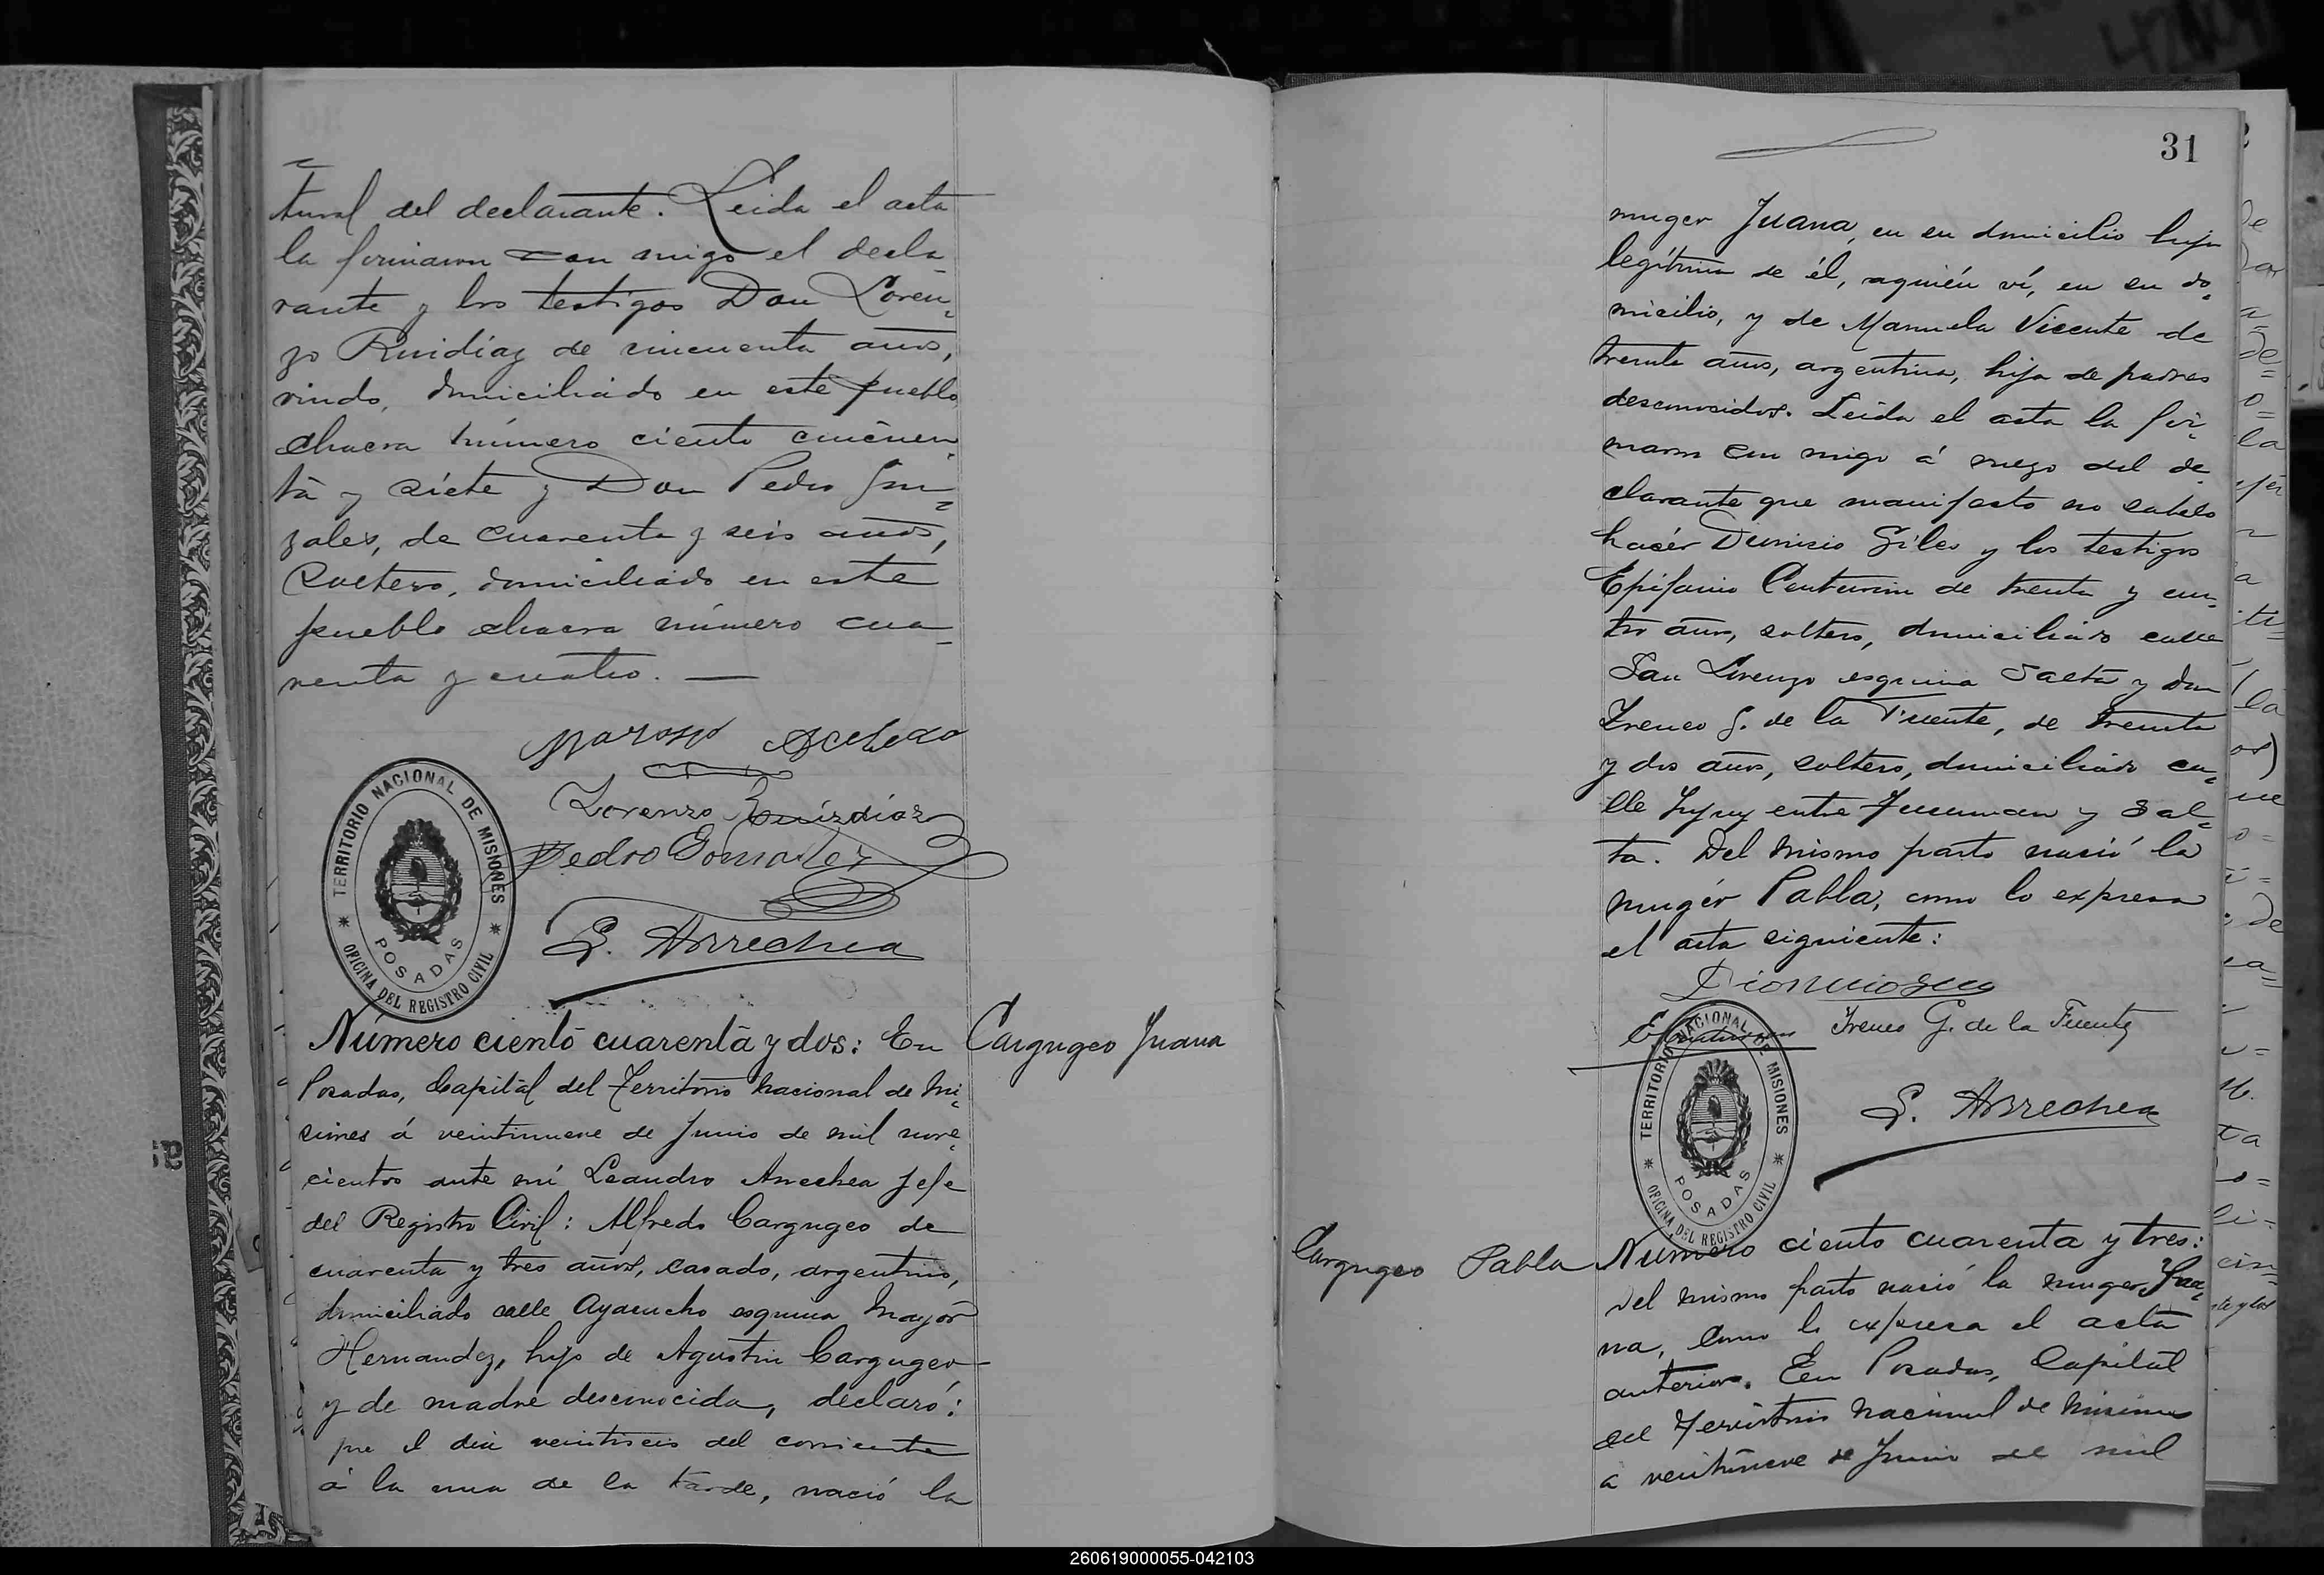 tural del declarante. Leida el acta
la firmaron con migo el decla
rante y los testigos Don Loren-
zo Ruidiaz de cincuenta años,
viudo, domiciliado en este pueblo
chacra número ciento cincuen-
ta y siete y Don Pedro Gon-
zales, de cuarenta y seis años,
soltero, domiciliado en este
pueblo chacra número cua-
renta y cuatro. —
Lorenzo Ruisdiaz
Pedro Gonzalez
L. Arrechea
TERRITORIO NACIONAL DE MISIONES
POSADAS
OFICINA DEL REGISTRO CIVIL
Cargugeo Juana
Número ciento cuarenta y dos: En
Posadas, Capital del Territorio Nacional de Mi-
siones á veintinueve de Junio de mil nove-
cientos ante mí Leandro Arrechea Jefe
del Registro Civil: Alfredo Cargugeo de
cuarenta y tres años, casado, argentino,
domiciliado calle Ayacucho esquina Mayor
Hernandez, hijo de Agustin Cargugeo
y de madre desconocida, declaró:
que el dia veintiseis del corriente
á la una de la tarde, nació la
31
muger Juana, en su domicilio hija
legítima de él, aquién ví, en su do-
micilio, y de Manuela Vicente de
treinta años, argentina, hija de padres
desconocidos. Leida el acta la fir-
maron con migo á ruego del de-
clarante que manifesto no saberlo
hacér Dionisio Giles y los testigos
Epifanio Centurion de treinta y cua-
tro años, soltero, domiciliado calle
San Lorenzo esquina Salta y don
Ireneo G. de la Fuente, de treinta
y dos años, soltero, domiciliado ca-
lle Jujuy entre Tucuman y Sal-
ta. Del mismo parto nació la
mugér Pabla, como lo expresa
el acta siguiente:
E Centurion Ireneo G. de la Fuente
L. Arrechea
TERRITORIO NACIONAL DE MISIONES
POSADAS
OFICINA DEL REGISTRO CIVIL
Cargugeo Pabla
Número ciento cuarenta y tres:
Del mismo parto nació la muger Jua-
na, como lo expresa el acta
anterior. En Posadas, Capital
del Territorio Nacional de Misiones
a veintinueve de Junio de mil
260619000055-042103